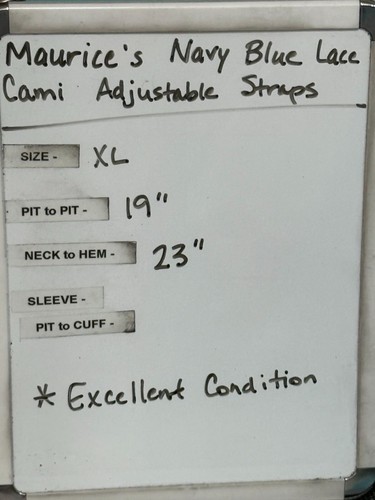 Maurice's Navy Blue Lace
Cami Adjustable Straps
SIZE - XL
PIT to PIT - 19"
NECK to HEM - 23"
SLEEVE -
PIT to CUFF -
* Excellent Condition